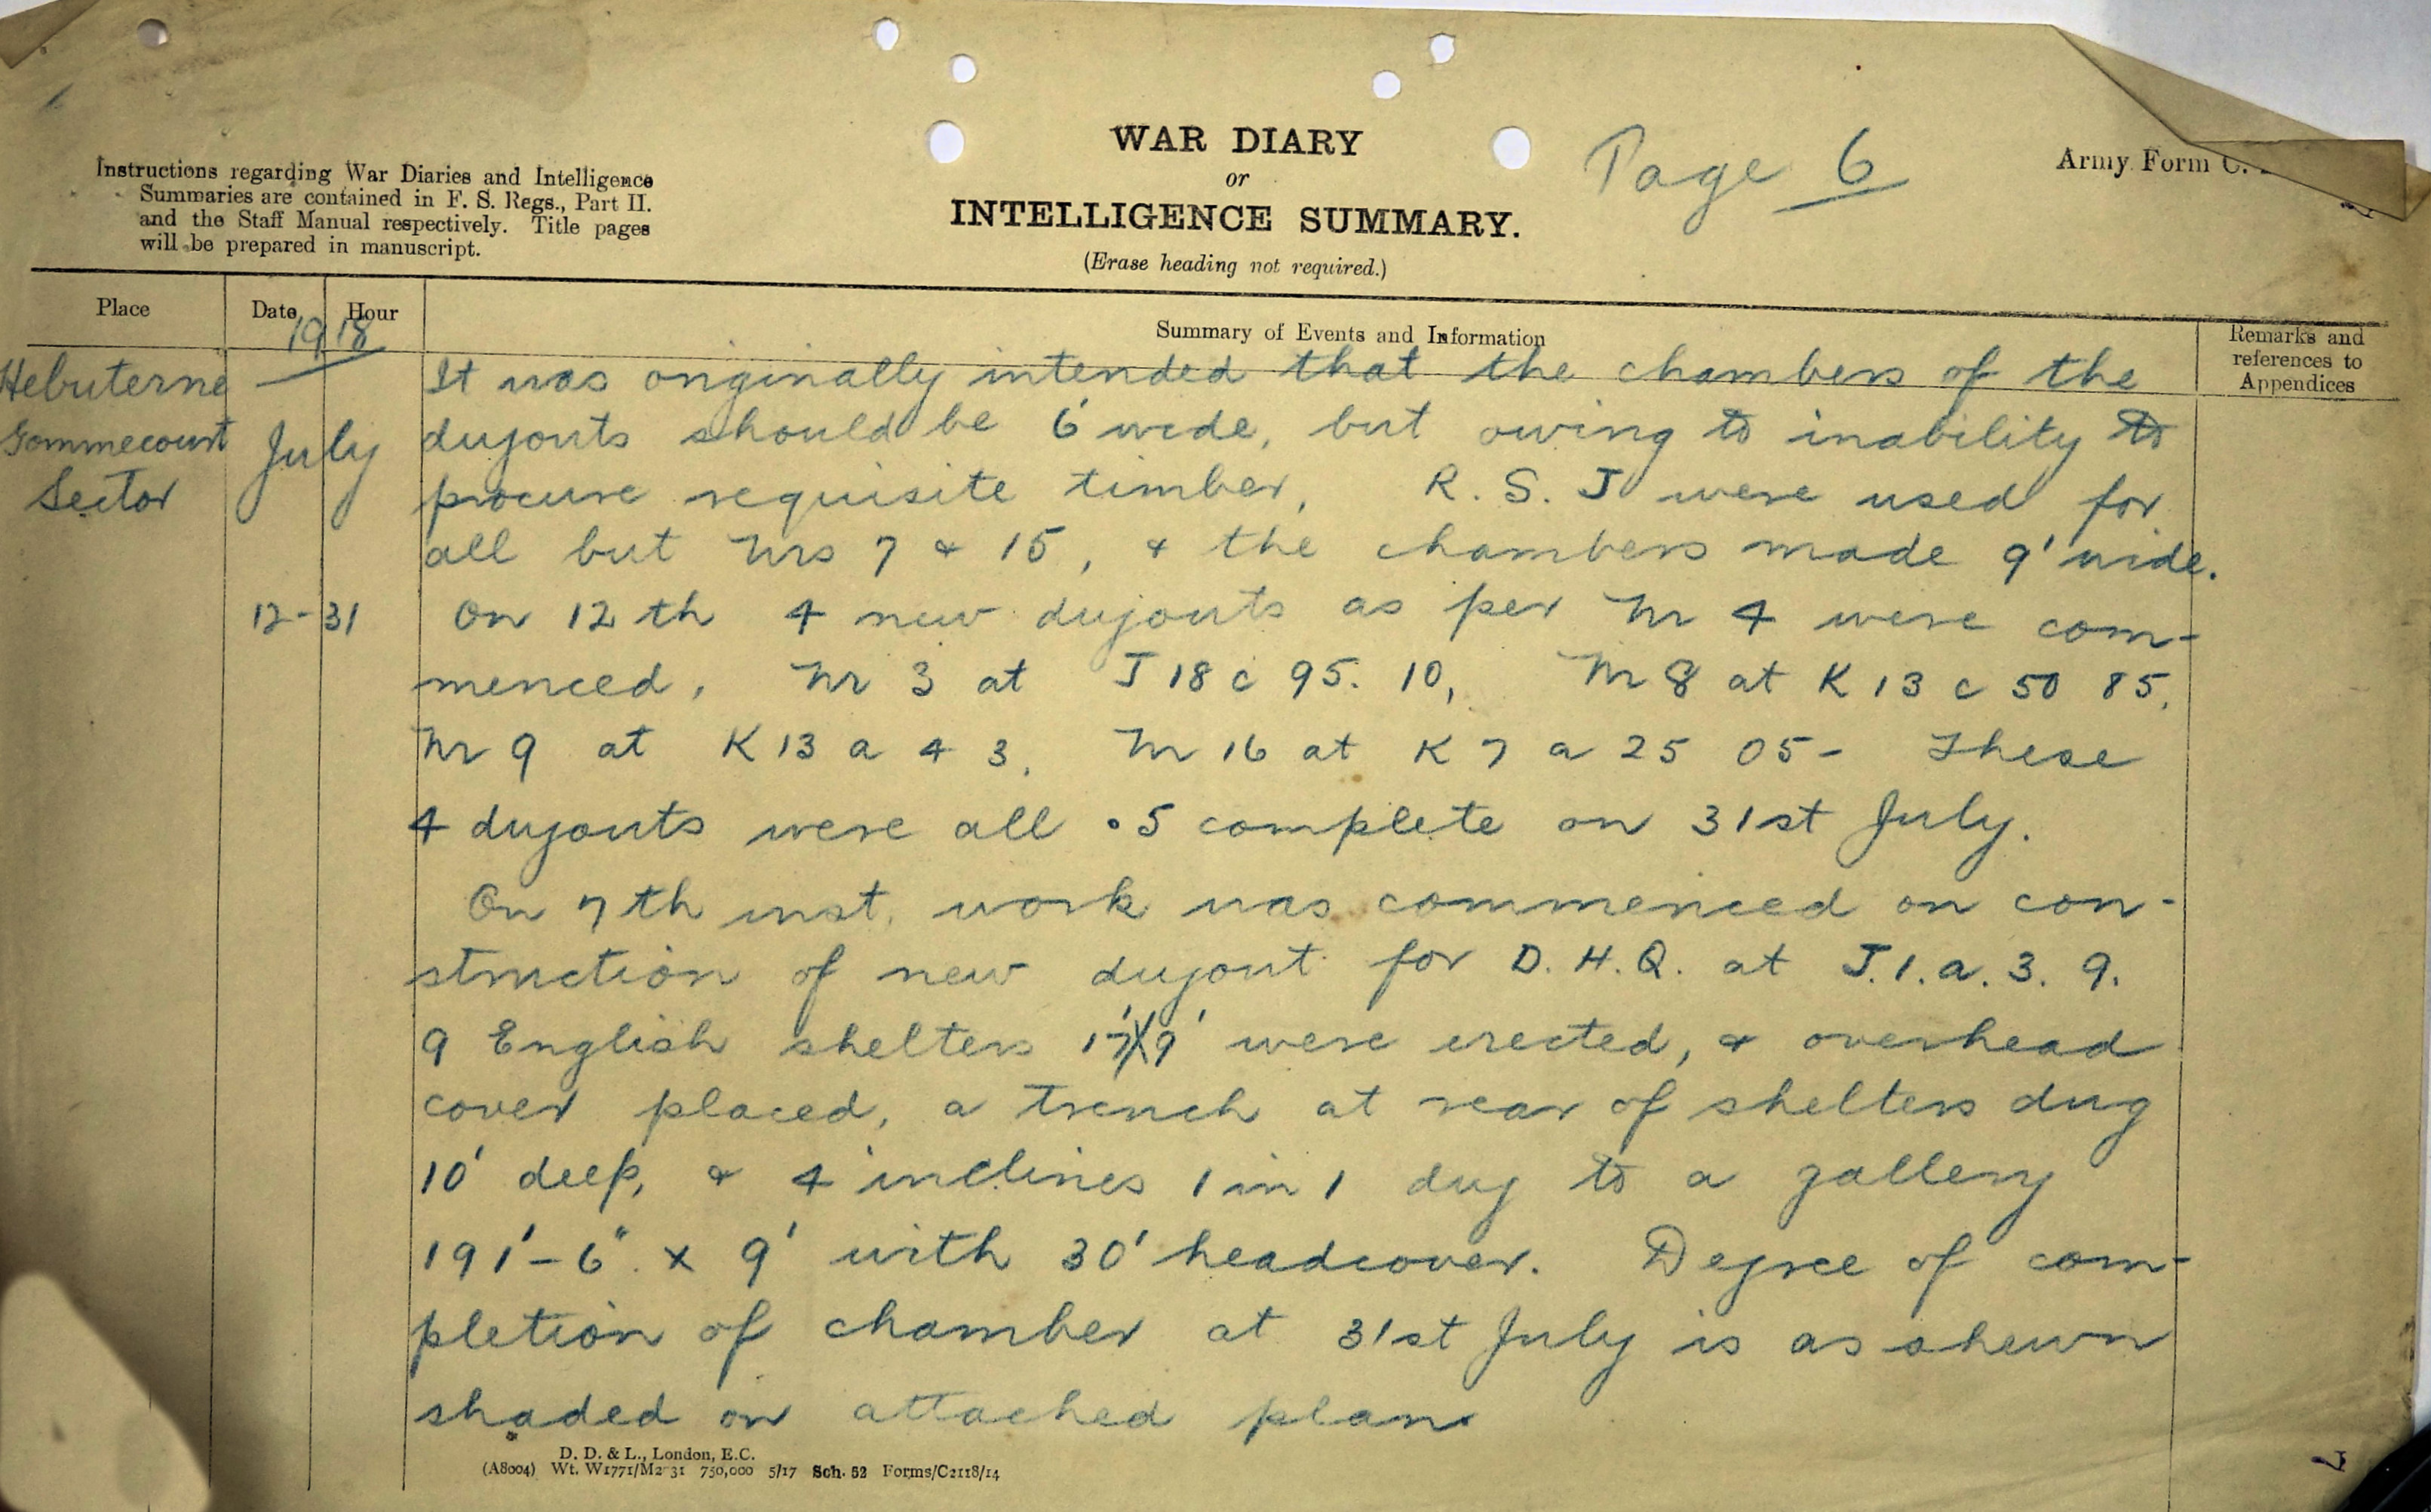 WAR DIARY
or
INTELLIGENCE SUMMARY.
(Erase heading not required.)
Page 6
Army Form C.
Instructions regarding War Diaries and Intelligence
Summaries are contained in F. S. Regs., Part II.
and the Staff Manual respectively. Title pages
will be prepared in manuscript.
Place Date Hour Summary of Events and Information Remarks and references to Appendices
1918
Hebuterne
Gommecourt
Sector
July
It was originally intended that the chambers of the
dugouts should be 6' wide, but owing to inability to
procure requisite timber, R. S. J were used for
all but Nrs 7 & 15, & the chambers made 9' wide.
12-31 On 12th 4 new dugouts as per Nr 4 were com-
menced, Nr 3 at J 18 c 95. 10, Nr 8 at K 13 c 50 85,
Nr 9 at K 13 a 4 3, Nr 16 at K 7 a 25 05- These
4 dugouts were all .5 complete on 31st July.
On 7th inst. work was commenced on con-
struction of new dugout for D. H. Q. at J. 1. a. 3. 9.
9 English shelters 17'X9' were erected, & overhead
cover placed, a trench at rear of shelters dug
10' deep, & 4 inclines 1 in 1 dug to a gallery
191'-6" x 9' with 30' headcover. Degree of com-
pletion of chamber at 31st July is as shewn
shaded on attached plan.
D. D. & L., London, E.C.
(A8004) Wt. W1771/M2 31 750,000 5/17 Sch. 52 Forms/C2118/14